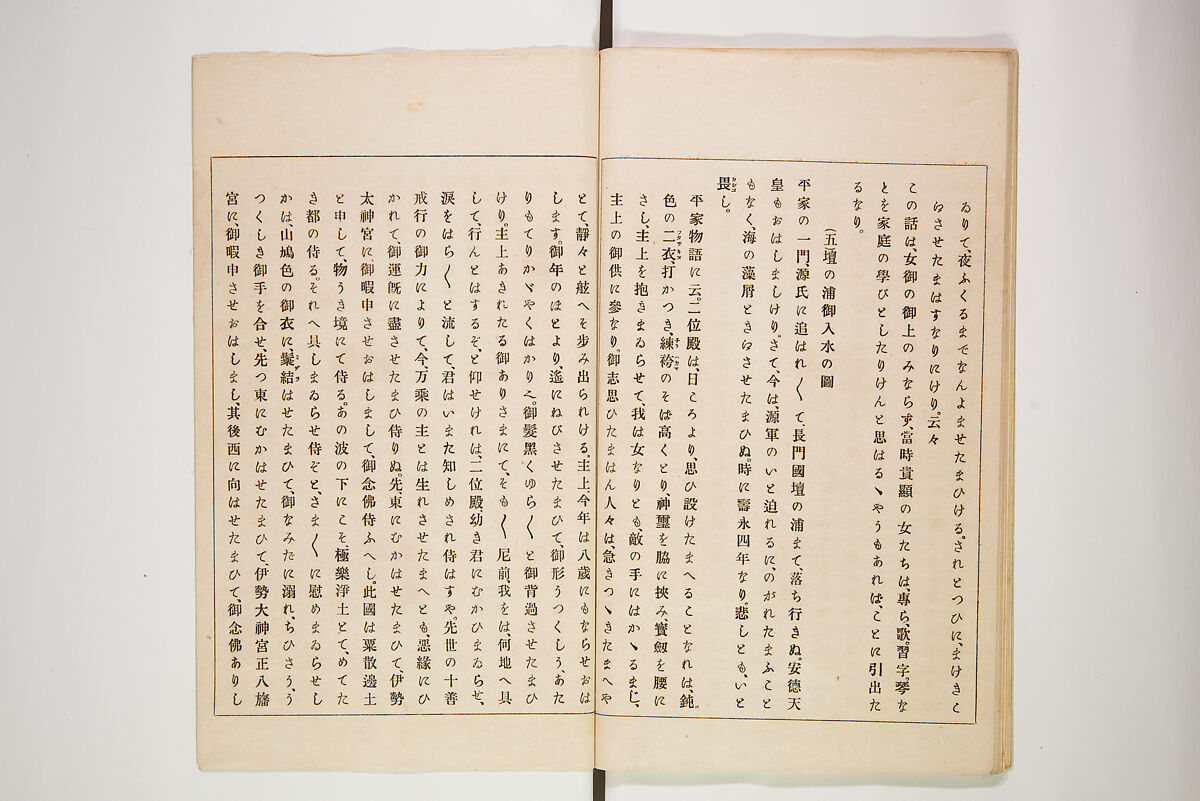 ゐりて、夜ふくるまでなんよませたまひける。されとつひに、まけきこ
江させたまはすなりにけり。云々
この話は、女御の御上のみならず、當時貴顯の女たちは、專ら、歌。習字。琴な
とを家庭の學びとしたりけんと思はるゝやうもあれば、ことに引出た
るなり。
(五)壇の浦御入水の圖
平家の一門、源氏に追はれ〳〵て、長門國壇の浦まて、落ち行きぬ。安德天
皇もおはしましけり。さて、今は、源軍のいと迫れるに、のがれたまふこと
もなく、海の藻屑とき江させたまひぬ。時に壽永四年なり。悲しとも、いと
畏し。
カシコ
平家物語に云。二位殿は、日ころより、思ひ設けたまへることなれは、鈍
色の二衣、打かつき、練袴のそば高くとり、神璽を脇に挾み、寳劔を腰に
フタツキヌ
ネリハカマ
さし、主上を抱きまゐらせて、我は女なりとも、敵の手にはかゝるまじ、
主上の御供に參なり。御志思ひたまはん人々は、急きつゝきたまへや
とて靜々と舷へそ歩み出られける。主上今年は八歳にもならせおは
します。御年のほとより、遙にねびさせたまひて、御形うつくしう、あた
りもてりかゞやくはかり也。御髮黑くゆら〳〵と御背過させたまひ
けり。主上あきれたる御ありさまにて、そも〳〵尼前、我をは、何地へ具
して、行んとはするぞ、と仰せけれは、二位殿、幼き君にむかひまゐらせ、
涙をはら〳〵と流して、君はいまた知しめされ侍はすや。先世の十善
戒行の御力によりて、今、万乘の主とは生れさせたまへとも、惡緣にひ
かれて、御運旣に盡させたまひ侍りぬ。先、東にむかはせたまひて、伊勢
太神宮に、御暇申させおはしまして、御念佛侍ふへし。此國は粟散邊土
と申して、物うき境にて侍る。あの波の下にこそ極樂淨土とて、めてた
き都の侍る。それへ具しまゐらせ侍ぞと、さま〳〵に慰めまゐらせし
かは、山鳩色の御衣に、鬟結はせたまひて、御なみたに溺れ、ちひさう、う
ミヅラ
つくしき御手を合せ、先つ東にむかはせたまひて、伊勢大神宮正八旛
宮に、御暇申させおはしまし、其後西に向はせたまひて、御念佛ありし